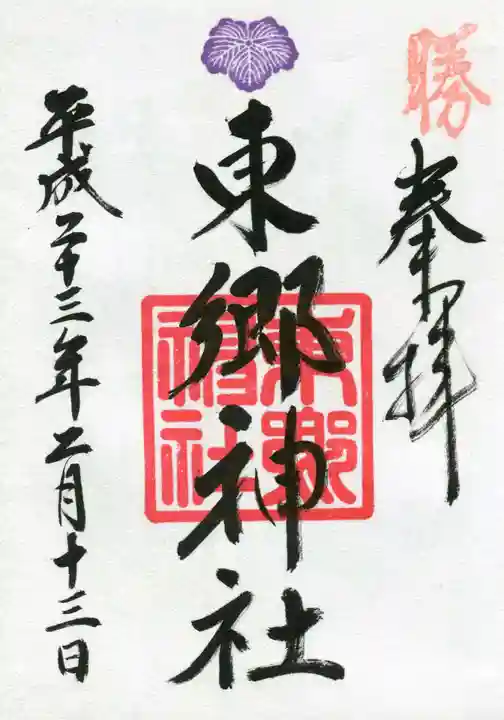 勝
奉拝
東郷神社
東郷神社
平成二十三年二月十三日